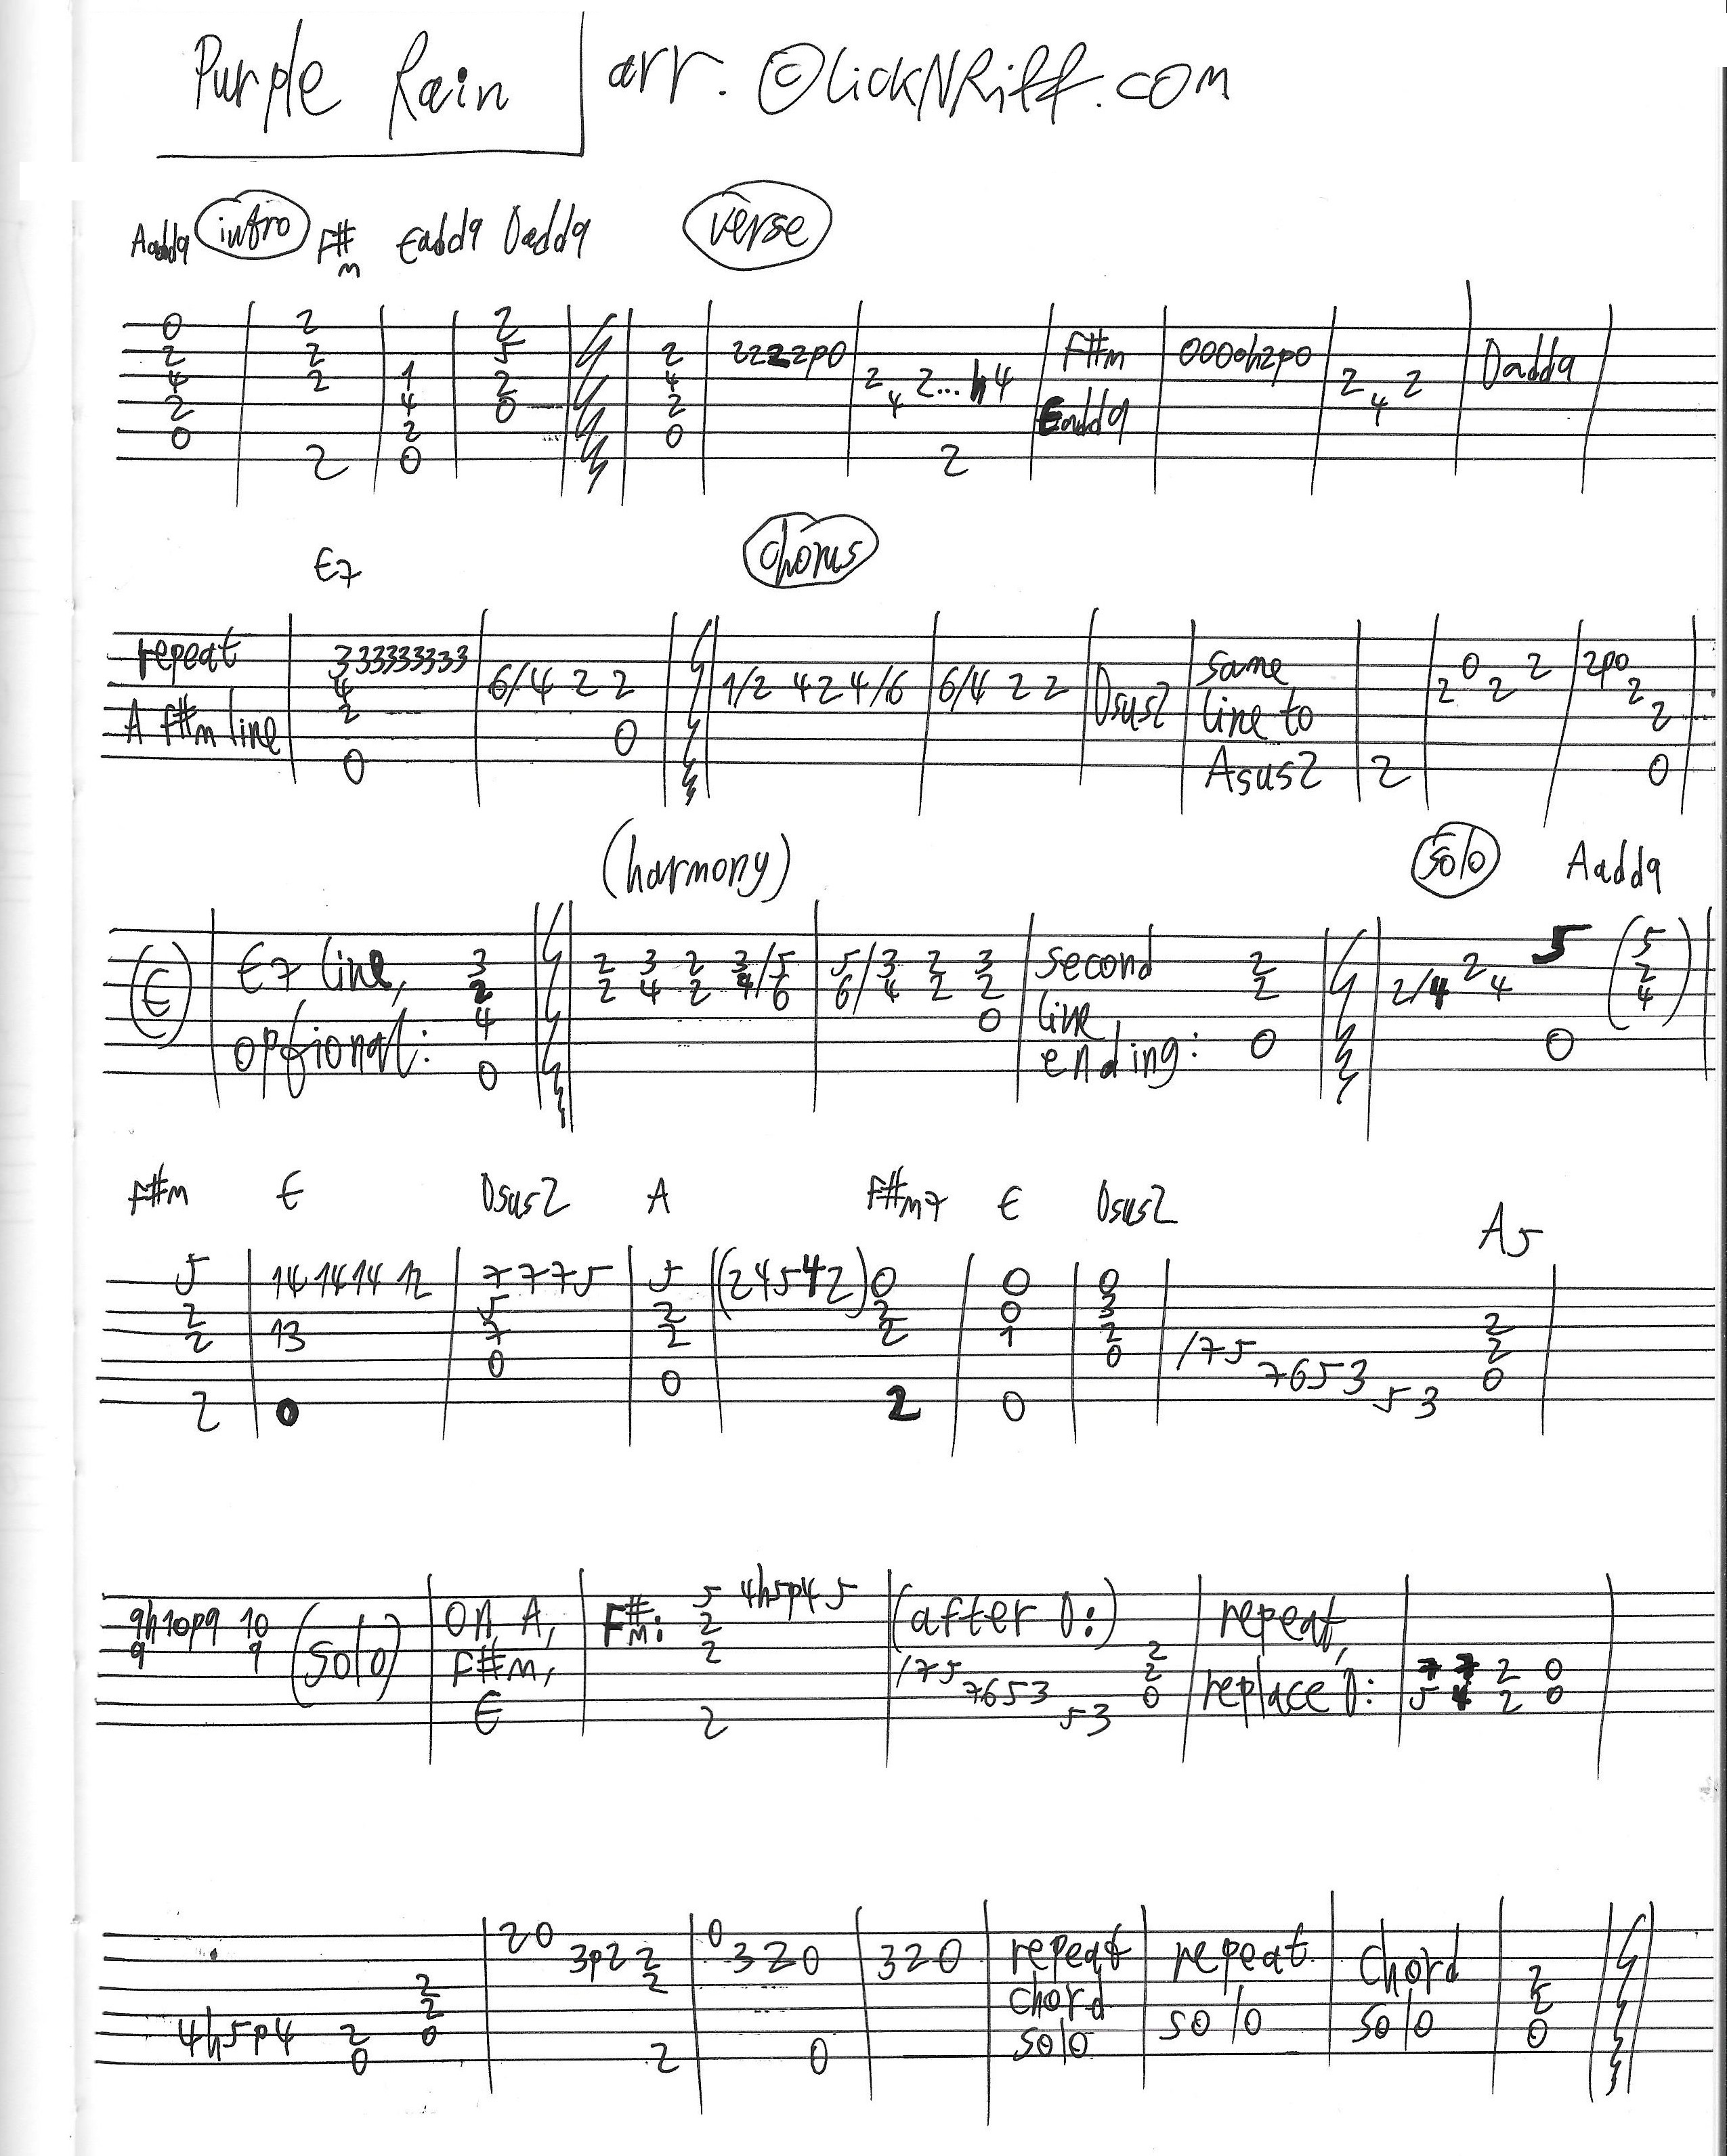 Purple Rain arr. ©LickNRiff.com
Aadd9 intro F#m Eadd9 Dadd9 verse
0 2 2
2 2 5 2 2222p0 F#m 000h2p0 Dadd9
4 2 1 2 4 2 2...h4 2 2
2 4 0 2 4 Eadd9 4
0 2 0
2 0 2
E7 chorus
repeat 333333333 same 0 2 2p0
4 6/4 2 2 1/2 4 2 4/6 6/4 2 2 2 2 2
A F#m line 2 Dsus2 line to 2
0
0 Asus2 2 0
(harmony) solo Aadd9
5 5
(E) E7 line, 3 2 3 2 3/5 5/3 2 3 second 2 2 5
2 2 4 2 4/6 6/4 2 2 2 2/4 4 2
optional: 4 0 line 4
ending: 0 0
0
F#m E Dsus2 A F#m7 E Dsus2 A5
5 14 14 14 12 7 7 7 5 5 (2 4 5 4 2) 0 0 0
2 5 2 2 0 3
2 13 7 2 2 1 2 2
0 0 /75 2
0 7653 0
2 0 2 0 53
5 4h5p4 5
9h10p9 10 (solo) on A, F#m: 2 (after D:) repeat,
9 9 F#m, 2 2
/75 2 replace D: 7 7 2 0
E 7653 0 5 4 2 0
2 53
20 0
3p2 2 3 2 0 3 2 0 repeat repeat chord
2 2 chord 2
2 solo solo solo 2
4h5p4 2 0 0
0 2 0